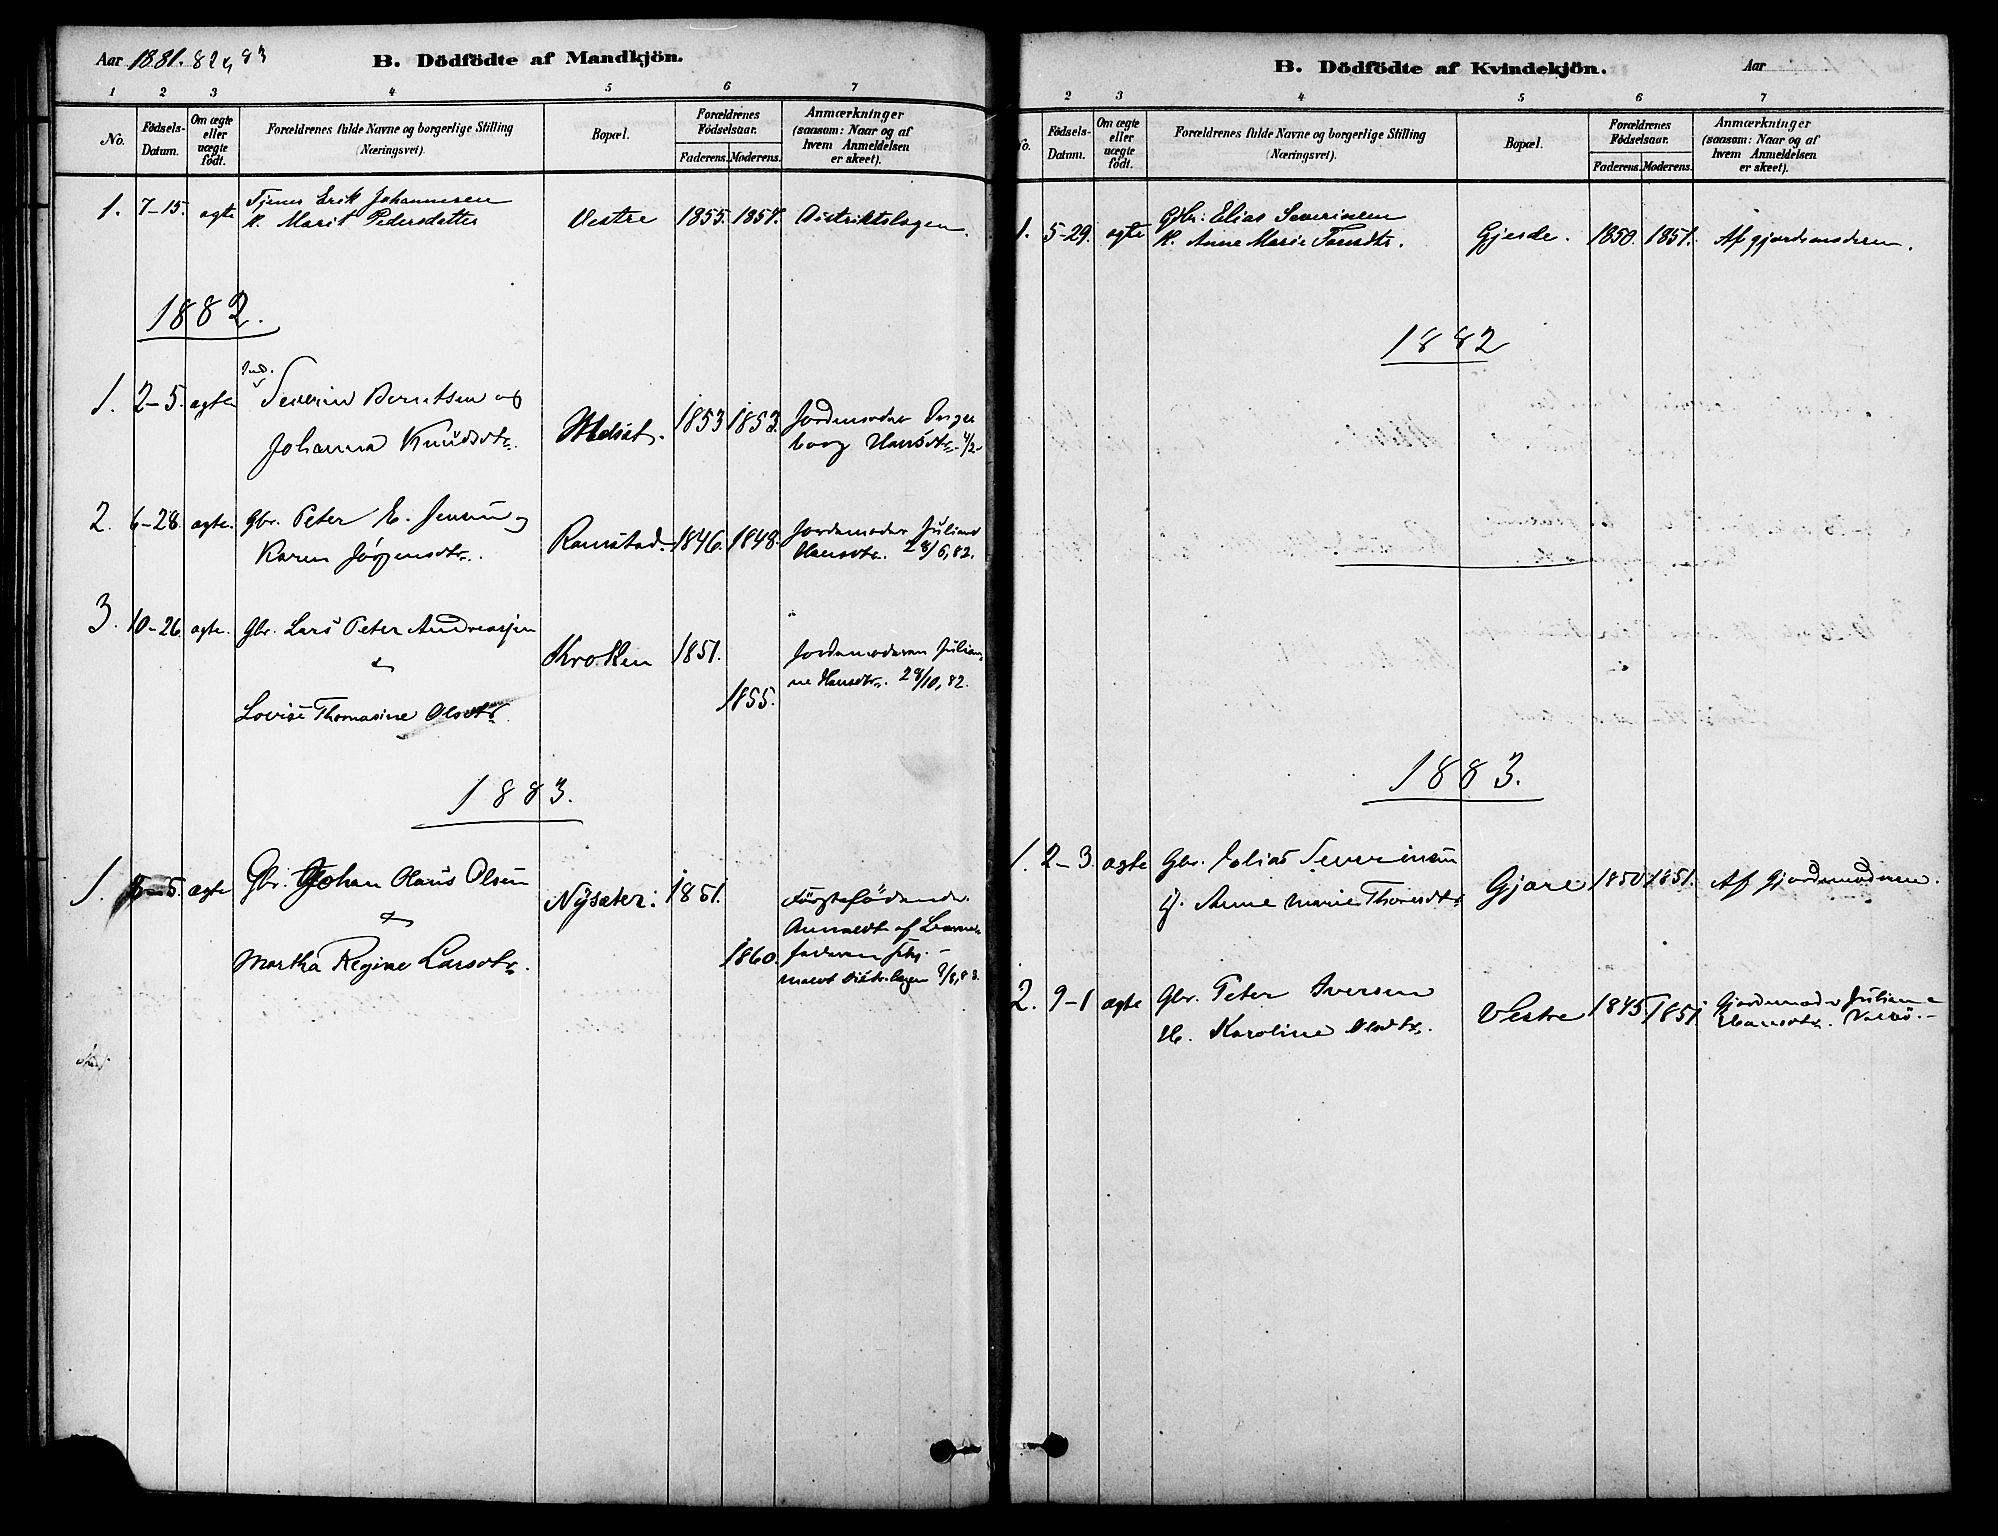 Aar 1881. 82, 83
B. Dödfödte af Mandkjön.
1 2 3 4 5 6 7
No.
Födsels-Datum.
Om ægte eller uægte födt.
Forældrenes fulde Navne og borgerlige Stilling
(Næringsvei).
Bopæl.
Forældrenes Födselsaar.
Faderens. Moderens.
Anmærkninger
(saasom: Naar og af
hvem Anmeldelsen
er skeet).
1. 7-15. ægte Tjener Erik Johannesen Vestre 1855. 1857. Distriktslægen.
K. Marit Pedersdatter
1882.
1. 2-5. ægte Ind. Severin Berntsen og 1853 1853. Jordemoder
Johanna Knudsdtr. borg Hansdtr. 4/2
2. 6-28. ægte. Gbr. Peter E. Jensen og Ramstad. 1846. 1848. Jordemoder Juliane
Karen Jørgensdtr. Hansdtr. 28/6, 82.
3. 10-26. ægte. Gbr. Lars Peter Andreasen
& Kroken 1851. Jordemoderen Julian-
ne Hansdtr. 28/10, 82.
Lovise Thomasine Olsdtr. 1855.
1883.
1. 5-5. ægte Gbr. Johan Olaus Olsen Nysæter. 1851.
&
Anmeldt af Barne-
Martha Regine Larsdtr. 1860. faderen
B. Dödfödte af Kvindekjön.
Aar
2 3 4 5 6 7
No.
Födsels-Datum.
Om ægte eller uægte födt.
Forældrenes fulde Navne og borgerlige Stilling
(Næringsvei).
Bopæl.
Forældrenes Födselsaar.
Faderens. Moderens.
Anmærkninger
(saasom: Naar og af
hvem Anmeldelsen
er skeet).
1. 5-29. ægte Gjbr. Elias Severinsen
K. Anne Marie Tomsdtr. Gjerde. 1850. 1851. Af gjordemoderen.
1882
1883.
1. 2-3. ægte Gbr. Elias Severinsen
Anne Marie Thomsdtr. Gjære 1850 1851. Af Gjordemoderen.
2. 9-1 ægte Gbr. Peter Iversen Vestre 1845. 1851 Gjordemoder Juliane
H. Karoline Olsdtr. Hansdtr.